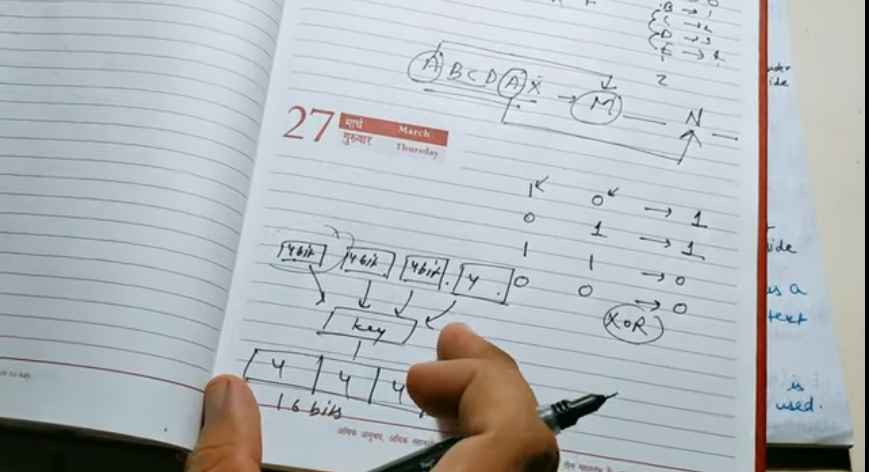 B → 1
C → 2
D → 3
E → 4
2
A B C D A X → M — N —
27 मार्च March
गुरुवार Thursday
1 0 → 1
0 1 → 1
1 1 → 0
0 0 → 0
XOR
4bit 4bit 4bit 4
key
4 4 4
16 bits
ide
ide
as a
text
is
used.